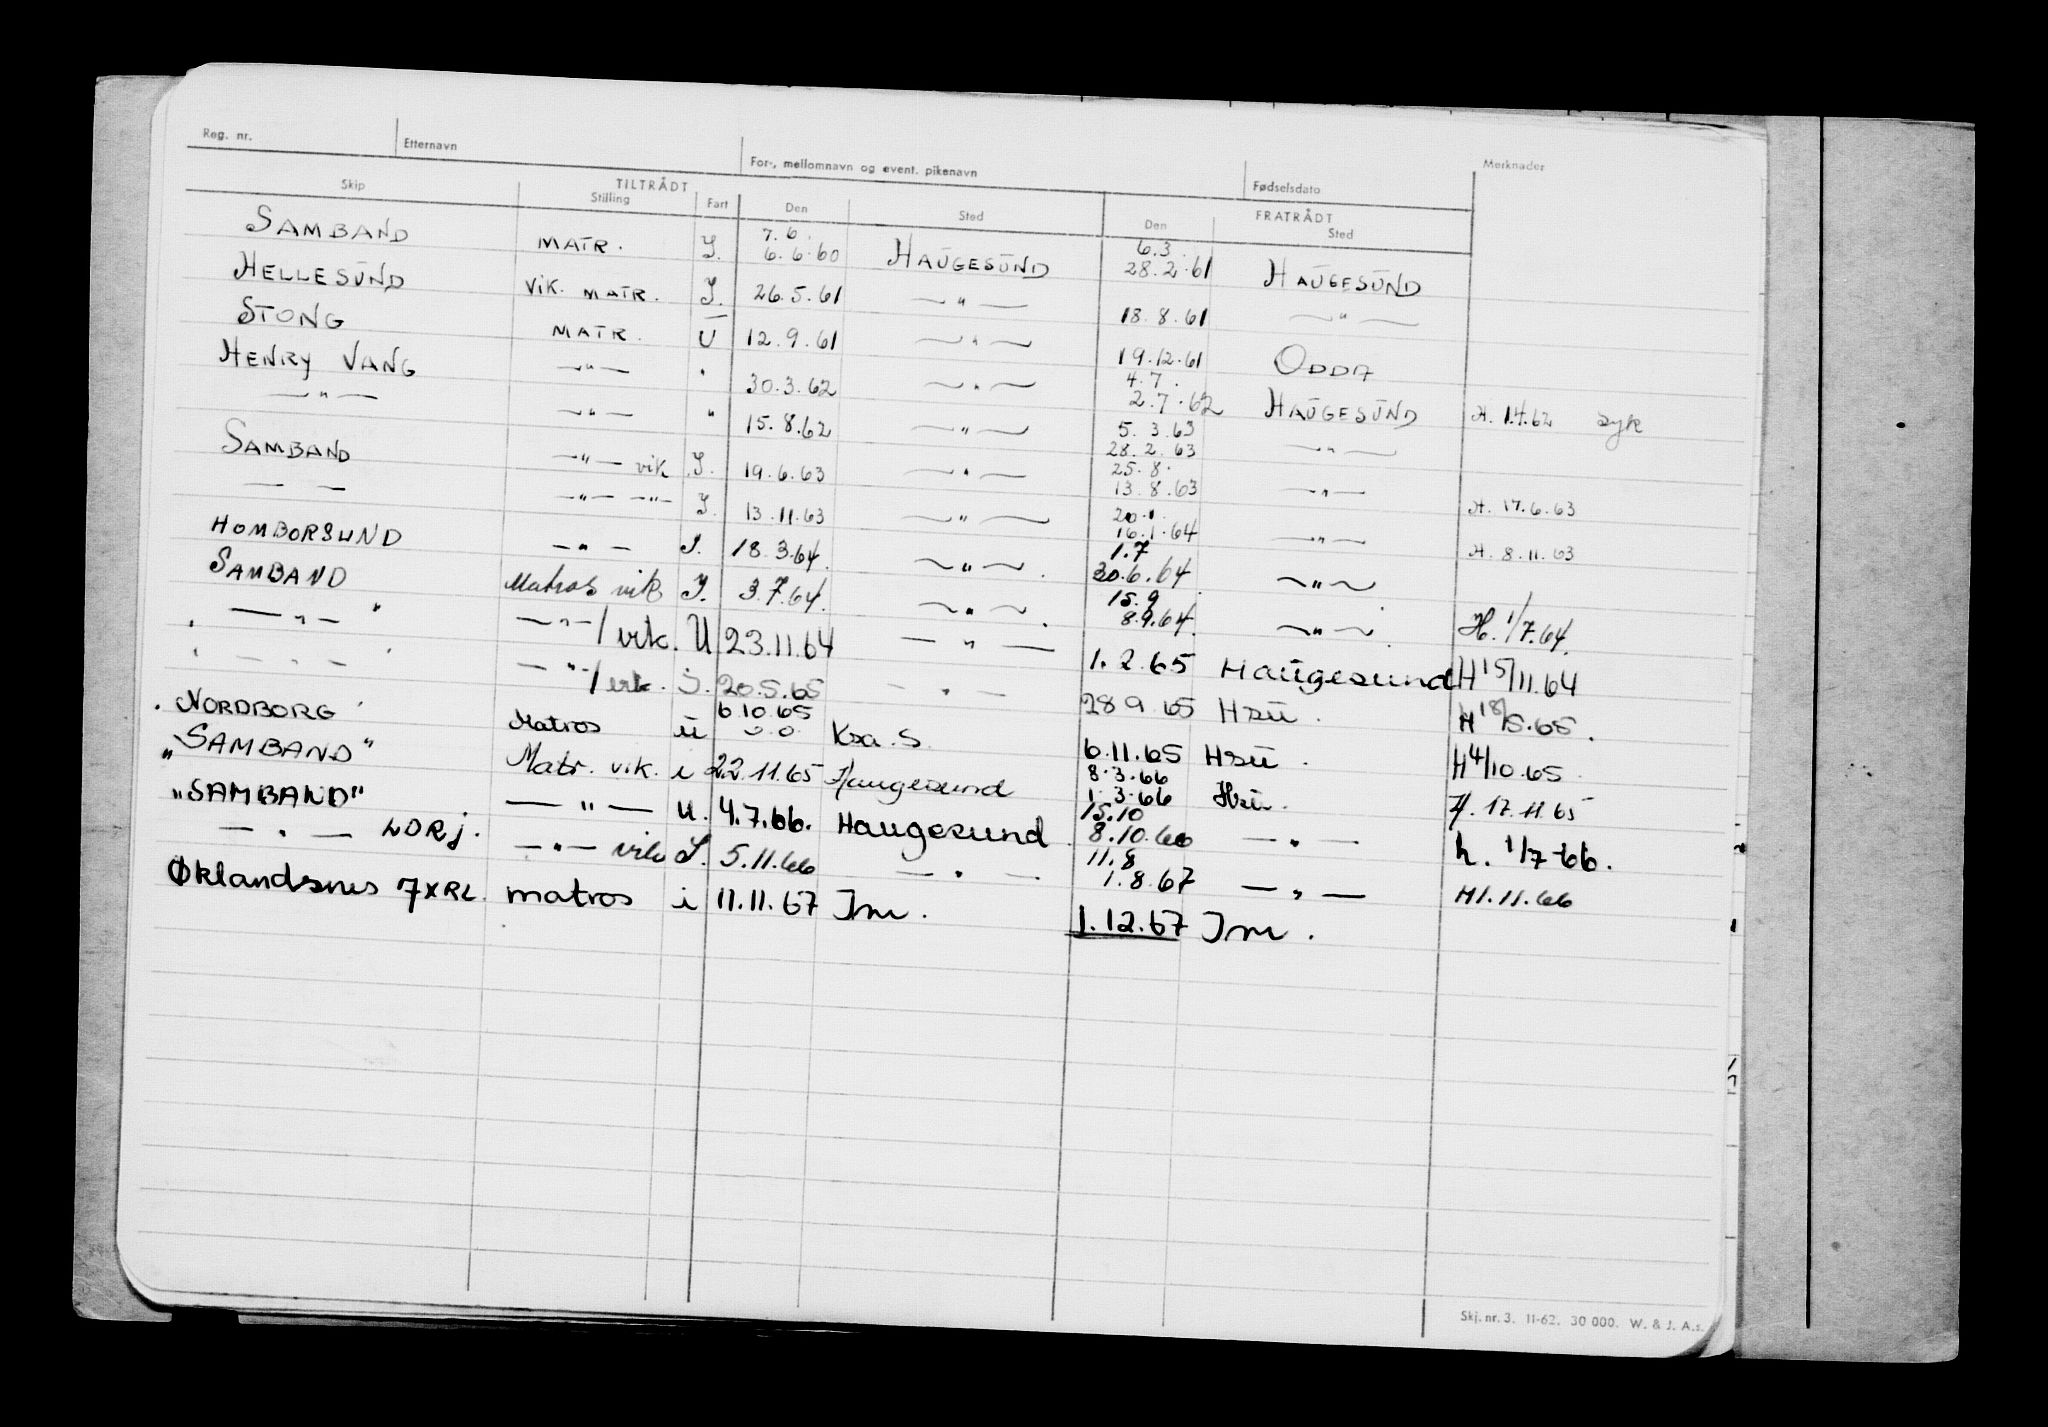 Reg. nr. Etternavn For-, mellomnavn og event. pikenavn Fødselsdato Merknader
TILTRÅDT FRATRÅDT
Skip Stilling Fart Den Sted Den Sted
7.6. 6.3.
SAMBAND MATR. I. 6.6.60 HAUGESUND 28.2.61 HAUGESUND
HELLESUND VIK. MATR. I. 26.5.61 — " — 18.8.61 — " —
STONG MATR. U 12.9.61 — " — 19.12.61 ODDA
4.7.
HENRY VANG — " — " 30.3.62 — " — 2.7.62 HAUGESUND H. 1.4.62 syk
5.3.63
— " — — " — " 15.8.62 — " — 28.2.63 — " —
25.8.
SAMBAND — " — vik I. 19.6.63 — " — 13.8.63 — " — H. 17.6.63
20.1.
— — — " — — " — I. 13.11.63 — " — 16.1.64 — " — H. 8.11.63
1.7
HOMBORSUND — " — I. 18.3.64. — " — . 30.6.64 — " —
15.9
SAMBAND Matros vik I. 3.7.64. — " — . 8.9.64. — " — . H. 1/7.64.
— " — " — " — / vik. U 23.11.64 — " — 1.2.65 Haugesund H 15/11.64
— " — — " — / vik. i. 20.5.65 — " — 28 9.65 Hsu. H 18/5.65.
6.10.65
NORDBORG Matros u Ksa. S. 6.11.65 Hsu. H 4/10.65
8.3.66
"SAMBAND" Matr. vik. i 22.11.65 Haugesund 1.3.66 Hsu. H. 17.11.65
15.10
"SAMBAND" — " — U. 4.7.66. Haugesund. 8.10.66 — " — h. 1/7-66.
11.8
— " — LDRJ. — " — vik I. 5.11.66 — " — 1.8.67 — " — H 1.11.66
Øklandsnes 7XRL. matros i 11.11.67 Im. 1.12.67 Im.
Skj. nr. 3. 11-62. 30 000. W. & J. A.s.